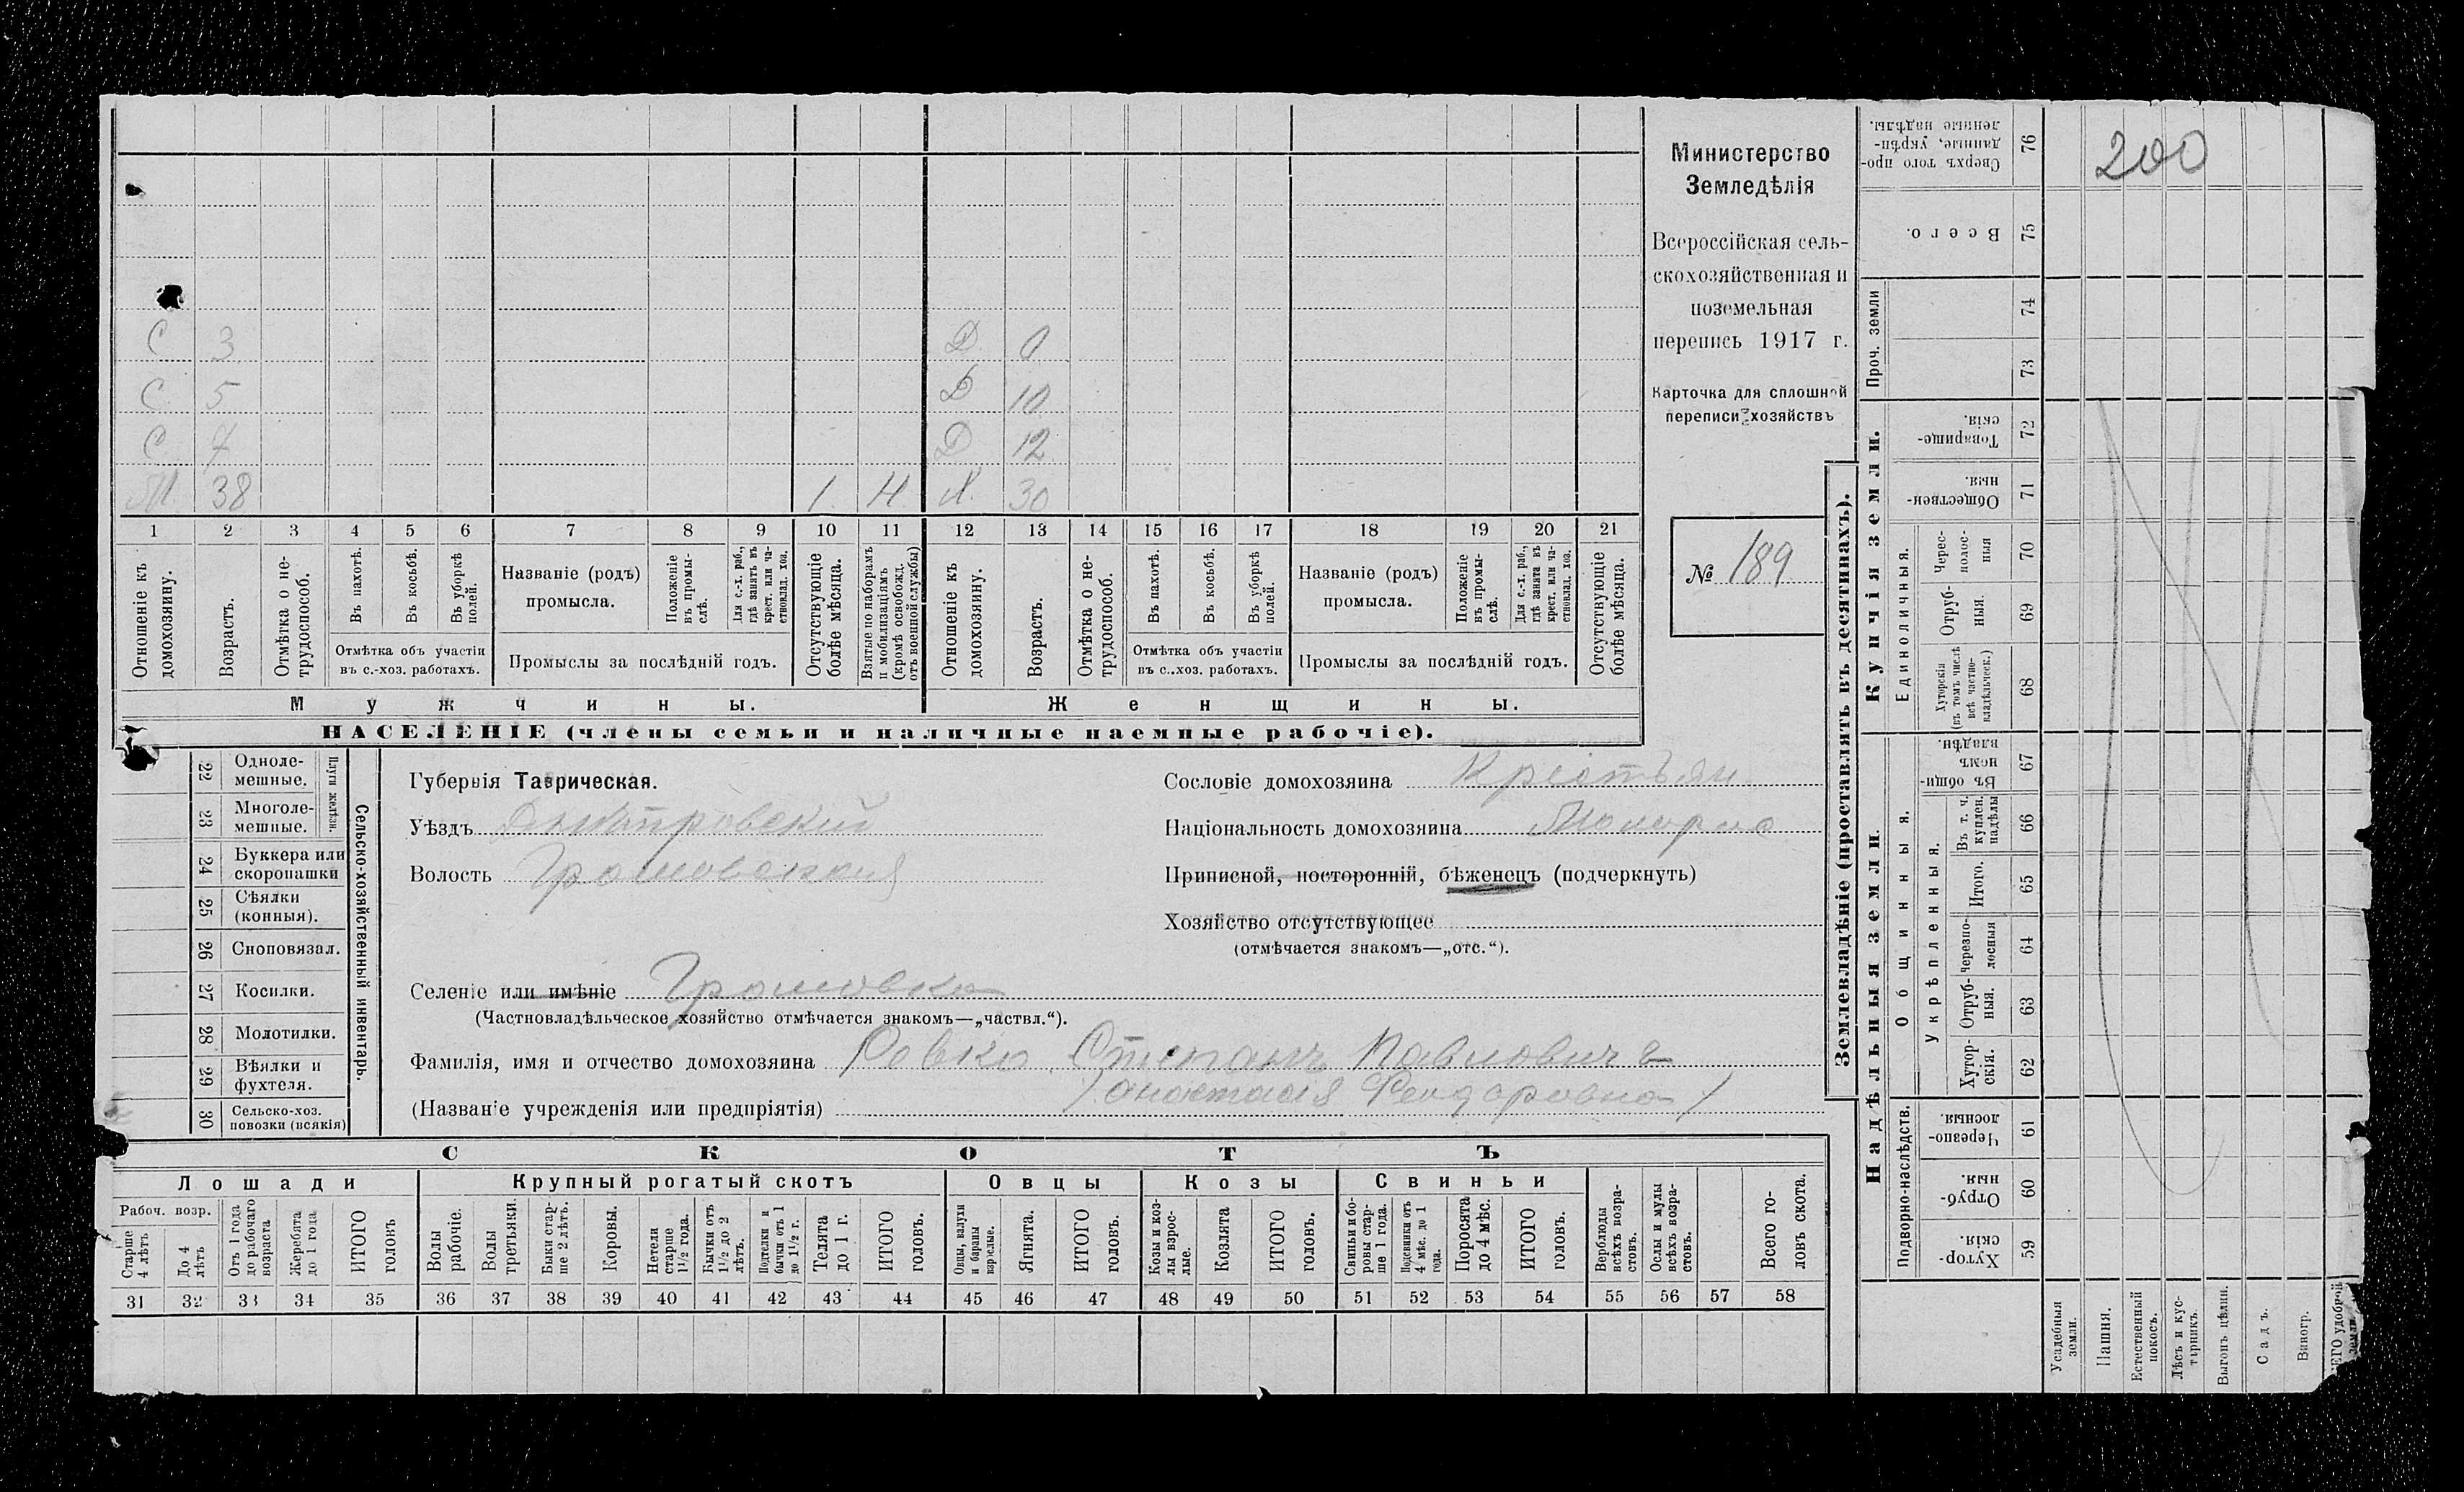 200
С 3 Д 0
С 5 Д 10
С 7 Д 12
М 38 1 Н Х 30
1 2 3 4 5 6 7 8 9 10 11 12 13 14 15 16 17 18 19 20 21
Отношеніе къ домохозяину.
Возрастъ.
Отмѣтка о не-
трудоспособ.
Въ пахотѣ.
Въ косьбѣ.
Въ уборкѣ полей.
Отмѣтка объ участіи
въ с.-хоз. работахъ.
Названіе (родъ)
промысла.
Положеніе въ промы-
слѣ.
Для с.-х. раб.,
гдѣ занятъ въ
крест. или ча-
стновлад. хоз.
Промыслы за послѣдній годъ.
Отсутствующіе
болѣе мѣсяца.
Взятые по наборамъ
и мобилизаціямъ
(кромѣ освобожд.
отъ военной службы)
Отношеніе къ
домохозяину.
Возрастъ.
Отмѣтка о не-
трудоспособ.
Въ пахотѣ.
Въ косьбѣ.
Въ уборкѣ полей.
Отмѣтка объ участіи
въ с..хоз. работахъ.
Названіе (родъ)
промысла.
Положеніе въ промы-
слѣ.
Для с.-х. раб.,
гдѣ занята въ
крест. или ча-
стновлад. хоз.
Промыслы за послѣдній годъ.
Отсутствующіе
болѣе мѣсяца.
Мужчины.
Женщины.
НАСЕЛЕНІЕ (члены семьи и наличные наемные рабочіе).
Министерство
Земледѣлія
Всероссійская сель-
скохозяйственная и
поземельная
перепись 1917 г.
Карточка для сплошной
переписи хозяйствъ
№ 189
22 Одноле-
мешные.
23 Многоле-
мешные.
Плуги желѣзн.
24 Буккера или
скоропашки
25 Сѣялки
(конныя).
26 Сноповязал.
27 Косилки.
28 Молотилки.
29 Вѣялки и
фухтеля.
30 Сельско-хоз.
повозки (всякія)
Сельско-хозяйственный инвентарь.
Губернія Таврическая.
Уѣздъ Днѣпровскій
Волость Громовская
Селеніе или имѣніе Громовка
(Частновладѣльческое хозяйство отмѣчается знакомъ—„частвл.“).
Фамилія, имя и отчество домохозяина Ровко Степанъ Павловичъ
/ Анастасія Феодоровна /
(Названіе учрежденія или предпріятія)
Сословіе домохозяина Крестьян
Національность домохозяина Малорос
Приписной, посторонній, бѣженецъ (подчеркнуть)
Хозяйство отсутствующее
(отмѣчается знакомъ—„отс.“).
СКОТЪ
Лошади
Крупный рогатый скотъ
Овцы
Козы
Свиньи
Рабоч. возр.
Старше
4 лѣтъ
До 4
лѣтъ
Отъ 1 года
до рабочаго
возраста
Жеребята
до 1 года
ИТОГО
головъ
Волы
рабочіе.
Волы
третьяки.
Быки стар-
ше 2 лѣтъ.
Коровы.
Нетели
старше
1½ года.
Бычки отъ
1½ до 2
лѣтъ.
Подтелки и
бычки отъ 1
до 1½ г.
Телята
до 1 г.
ИТОГО
головъ.
Овцы, валухи
и бараны
взрослые.
Ягнята.
ИТОГО
головъ.
Козы и коз-
лы взрос-
лые.
Козлята
ИТОГО
головъ.
Свиньи и бо-
ровы стар-
ше 1 года.
Подсвинки отъ
4 мѣс. до 1
года.
Поросята
до 4 мѣс.
ИТОГО
головъ.
Верблюды
всѣхъ возра-
стовъ.
Ослы и мулы
всѣхъ возра-
стовъ.
Всего го-
ловъ скота.
31 32 33 34 35 36 37 38 39 40 41 42 43 44 45 46 47 48 49 50 51 52 53 54 55 56 57 58
Землевладѣніе (проставлять въ десятинахъ).
Надѣльныя земли.
Купчія земли.
Проч. земли
Подворно-наслѣдств.
Общинныя.
Укрѣпленныя.
Единоличныя.
Сверхъ того про-
данные, укрѣп-
ленные надѣлы.
76
Всего.
75
74
73
Товарище-
скія.
72
Обществен-
ныя.
71
Черес-
полос-
ныя
70
Отруб-
ныя.
69
Хуторскія
(въ томъ числѣ
всѣ частно-
владѣльческ.)
68
Въ общин-
номъ
владѣн.
67
Въ т. ч.
куплен.
надѣлы
66
Итого.
65
Черезпо-
лосныя
64
Отруб-
ныя.
63
Хутор-
скія.
62
Черезпо-
лосныя
61
Отруб-
ныя.
60
Хутор-
скія.
59
Усадебныя
земли.
Пашня.
Естественный
покосъ.
Лѣсъ и кус-
тарникъ.
Выгонъ цѣлин.
Садъ.
Виногр.
ЕГО удобной
земли